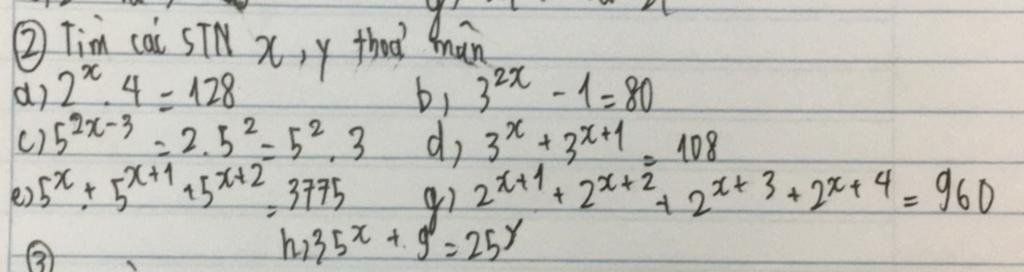 ② Tìm các STN x, y thoả mãn
a) 2^x . 4 = 128 b) 3^{2x} - 1 = 80
c) 5^{2x-3} = 2.5^2 = 5^2 . 3 d) 3^x + 3^{x+1} = 108
e) 5^x + 5^{x+1} + 5^{x+2} = 3775 g) 2^{x+1} + 2^{x+2} + 2^{x+3} + 2^{x+4} = 960
h) 35^x + 9 = 25^y
③